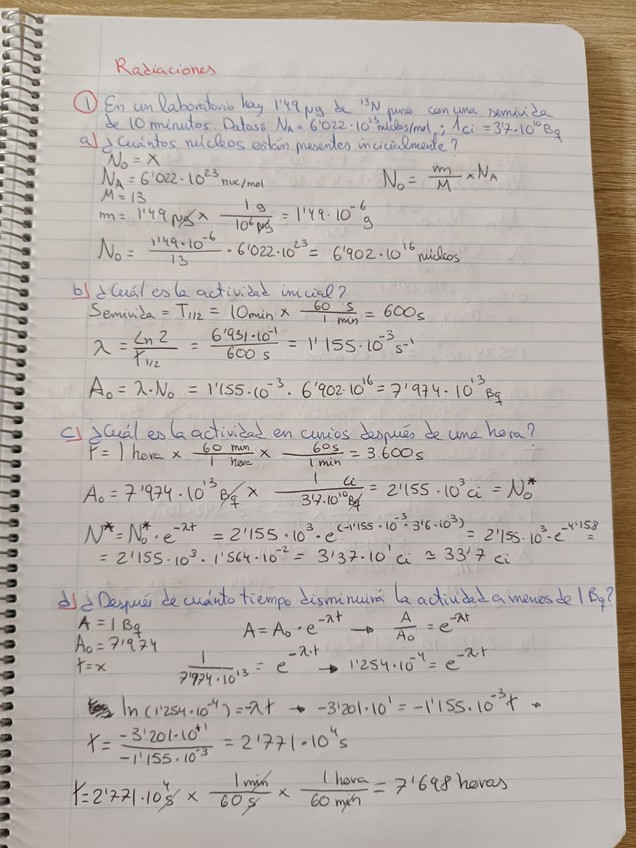 Radiaciones
① En un laboratorio hay 1'49 µg de ¹³N puro con una semivida
de 10 minutos. Datos: N_A = 6'022·10²³ núcleos/mol; 1ci = 3'7·10¹⁰ Bq
a) ¿Cuántos núcleos están presentes inicialmente?
N₀ = x
N_A = 6'022·10²³ nuc/mol
N₀ = m/M × N_A
M = 13
m = 1'49 µg × 1g/10⁶ µg = 1'49·10⁻⁶ g
N₀ = 1'49·10⁻⁶/13 · 6'022·10²³ = 6'902·10¹⁶ núcleos
b) ¿Cuál es la actividad inicial?
Semivida = T₁/₂ = 10min × 60 s/1 min = 600s
λ = Ln 2/T₁/₂ = 6'931·10⁻¹/600 s = 1'155·10⁻³ s⁻¹
A₀ = λ·N₀ = 1'155·10⁻³ · 6'902·10¹⁶ = 7'974·10¹³ Bq
c) ¿Cuál es la actividad en curios después de una hora?
t = 1 hora × 60 min/1 hora × 60s/1 min = 3.600s
A₀ = 7'974·10¹³ Bq × 1 ci/3'7·10¹⁰ Bq = 2'155·10³ ci = N₀*
N* = N₀*·e^(-λt) = 2'155·10³·e^(-1'155·10⁻³·3'6·10³) = 2'155·10³·e^(-4'158) =
= 2'155·10³·1'564·10⁻² = 3'37·10¹ ci ≃ 33'7 ci
d) ¿Después de cuánto tiempo disminuirá la actividad a menos de 1 Bq?
A = 1 Bq
A = A₀·e^(-λt) → A/A₀ = e^(-λt)
A₀ = 7'974
t = x
1/7'974·10¹³ = e^(-λ·t) → 1'254·10⁻⁴ = e^(-λ·t)
ln(1'254·10⁻⁴) = -λt → -3'201·10¹ = -1'155·10⁻³t
t = -3'201·10⁺¹/-1'155·10⁻³ = 2'771·10⁴ s
t = 2'771·10⁴ s × 1 min/60 s × 1 hora/60 min = 7'698 horas